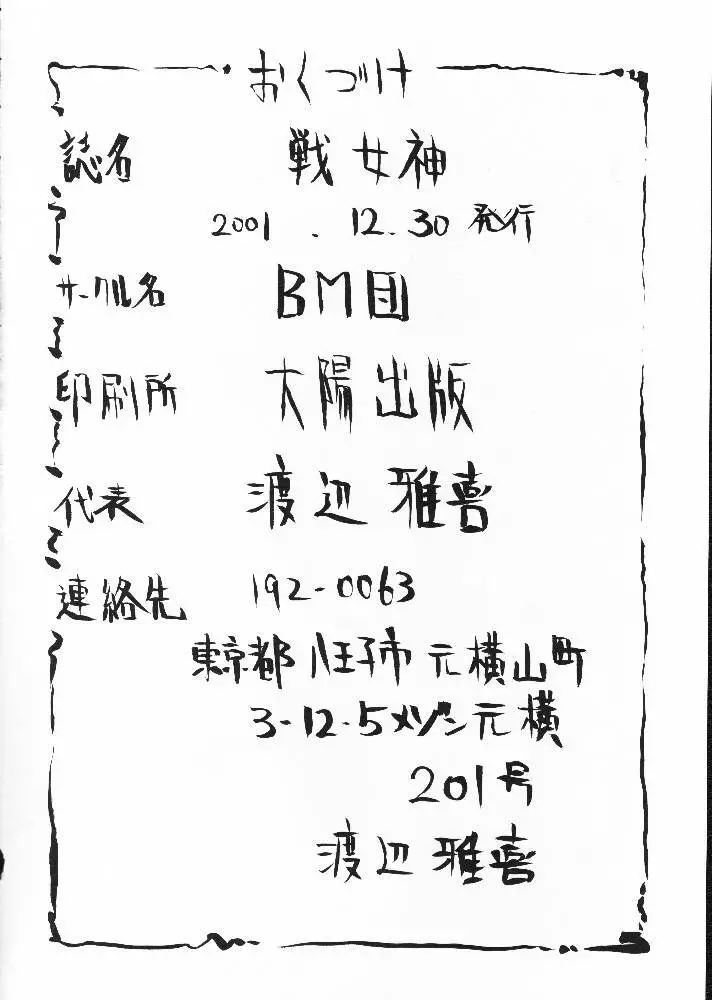 おくづけ
誌名 戦女神
2001.12.30 発行
サークル名 BM団
印刷所 太陽出版
代表 渡辺 雅喜
連絡先 192-0063
東京都 八王子市 元横山町
3-12-5 メゾン元横
201号
渡辺 雅喜